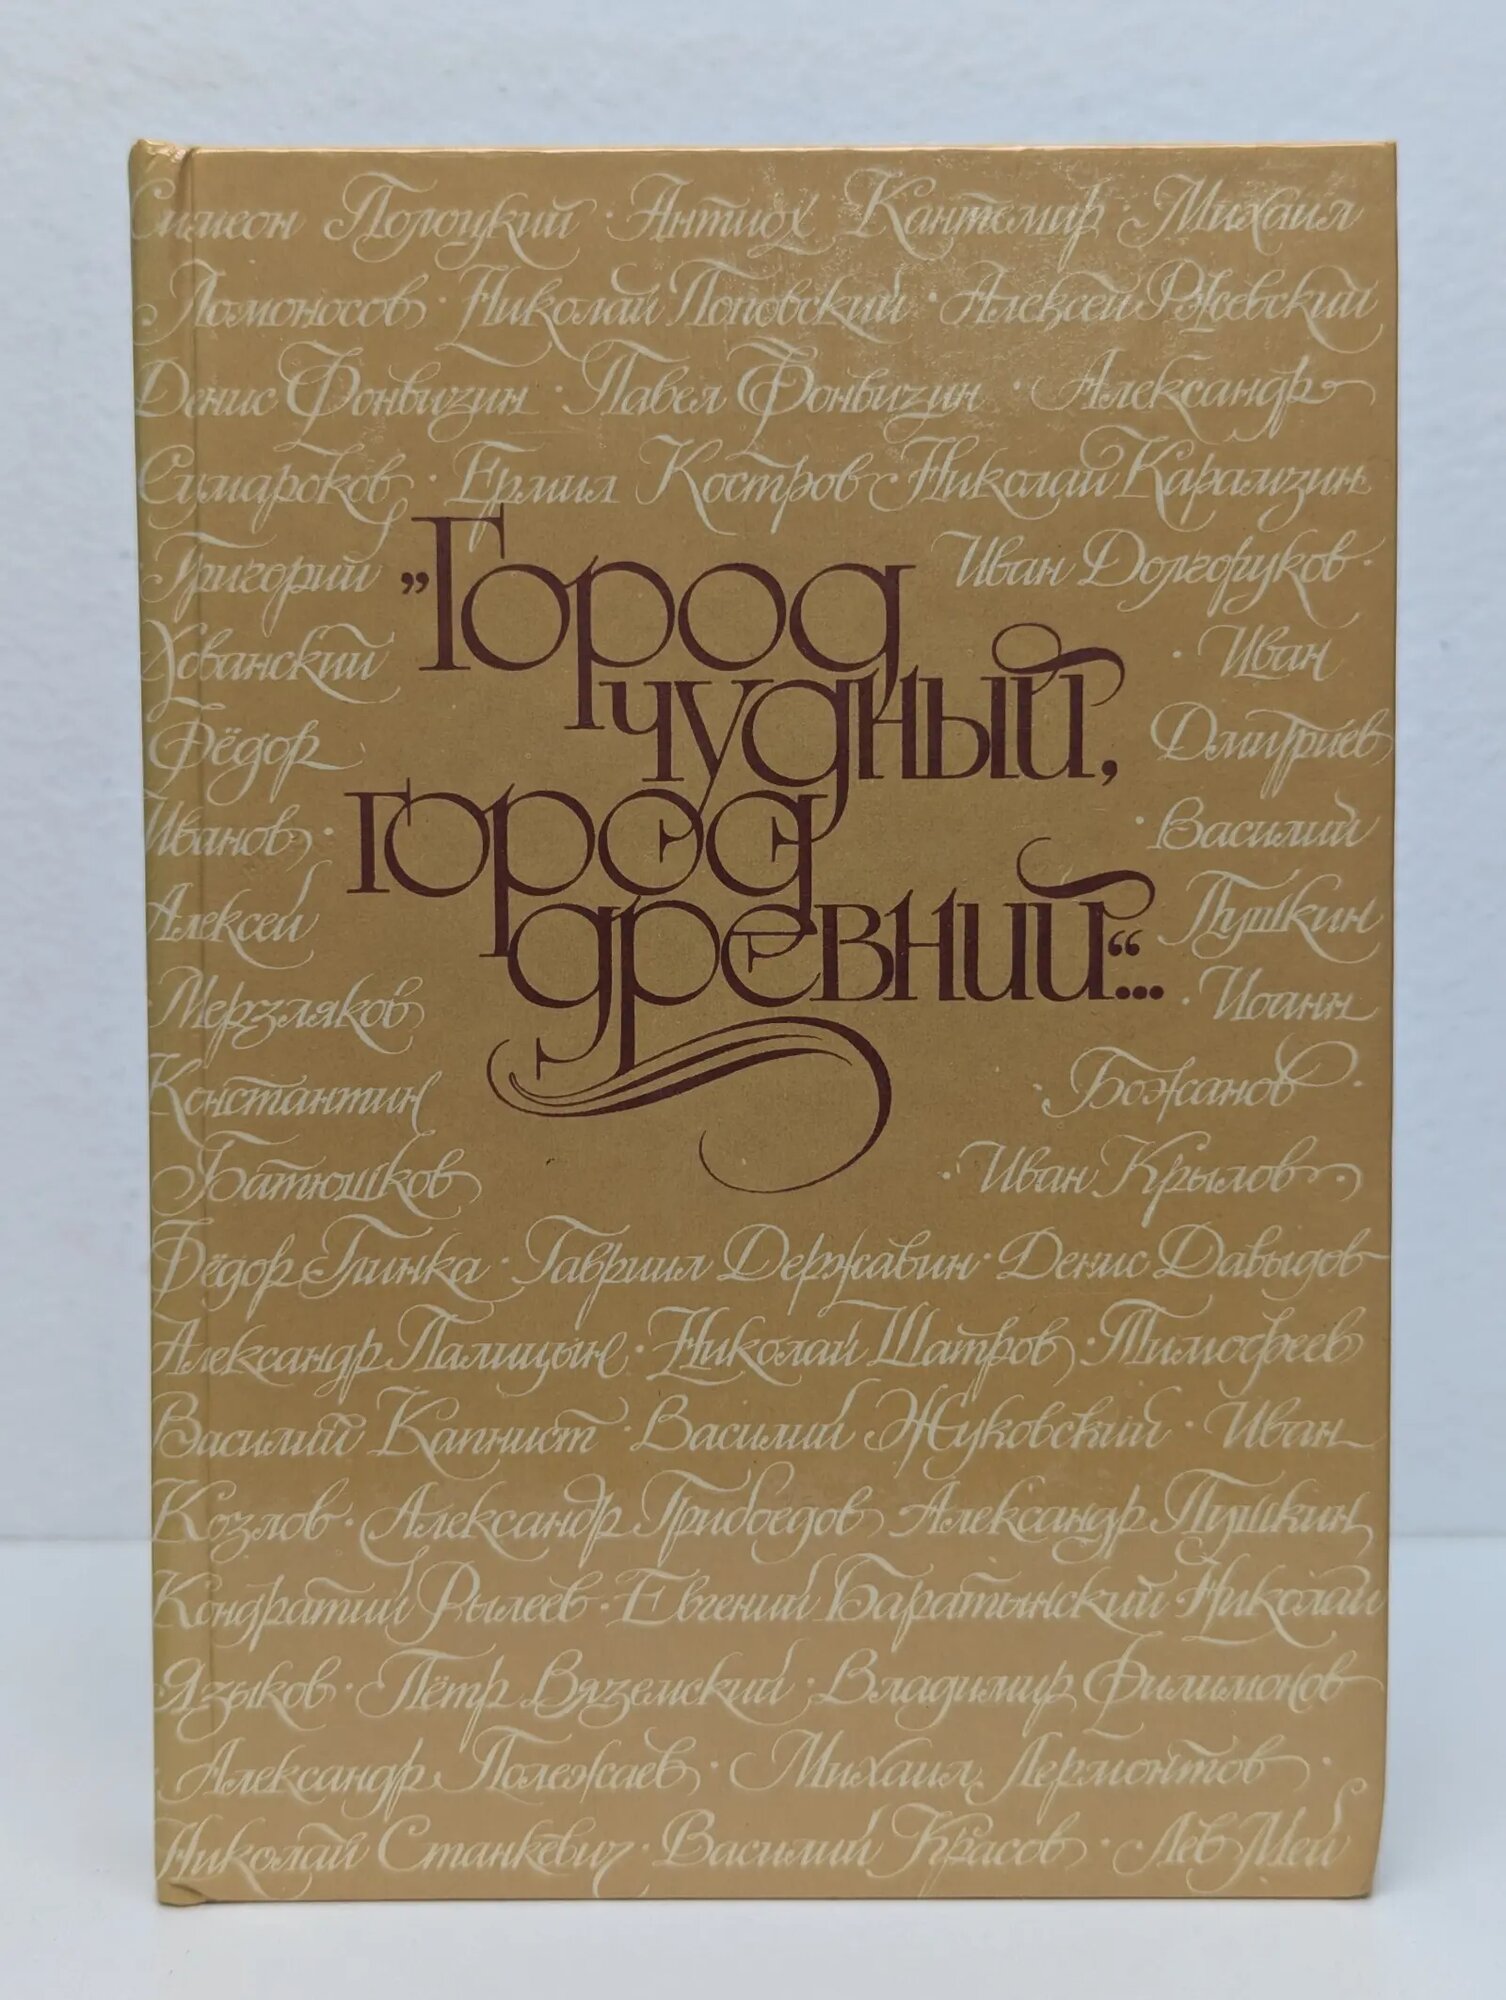 Симеон Полоцкий · Антиох Кантемир · Михаил
Ломоносов · Николай Поповский · Алексей Ржевский
Денис Фонвизин · Павел Фонвизин · Александр
Сумароков · Ермил Костров · Николай Карамзин
Григорий
Иван Долгоруков ·
Хованский
· Иван
Фёдор
Дмитриев
Иванов ·
· Василий
Алексей
Пушкин
Мерзляков
· Иоанн
Константин
Божанов ·
Батюшков
· Иван Крылов ·
„Город
чудный,
город
древний“...
Фёдор Глинка · Гавриил Державин · Денис Давыдов
Александр Палицын · Николай Шатров · Тимофеев
Василий Капнист · Василий Жуковский · Иван
Козлов · Александр Грибоедов · Александр Пушкин
Кондратий Рылеев · Евгений Баратынский · Николай
Языков · Пётр Вяземский · Владимир Филимонов
Александр Полежаев · Михаил Лермонтов ·
Николай Станкевич · Василий Красов · Лев Мей